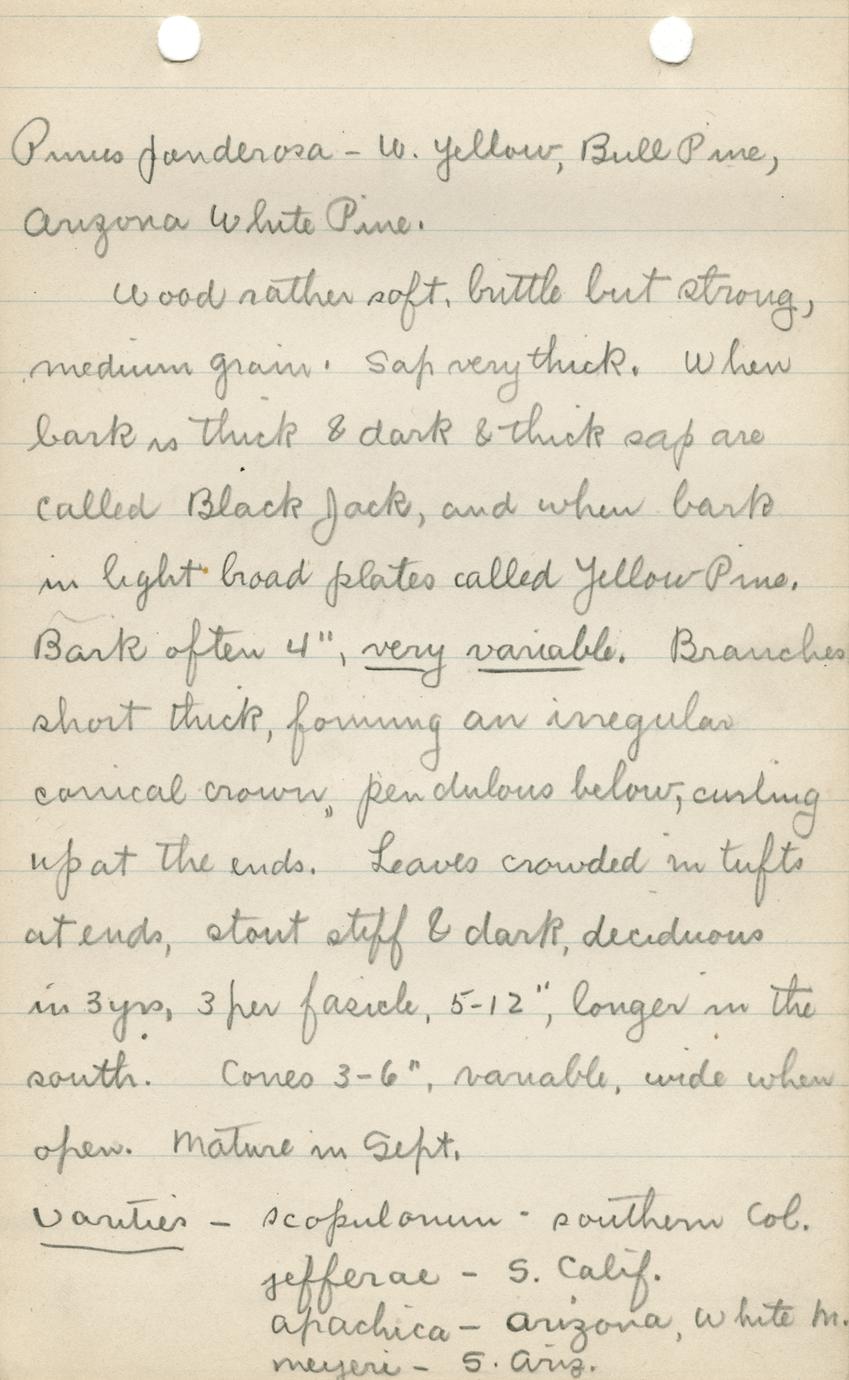 Pinus ponderosa - W. Yellow, Bull Pine,
Arizona White Pine.
Wood rather soft, brittle but strong,
medium grain. Sap very thick. When
bark is thick & dark & thick sap are
called Black Jack, and when bark
in light broad plates called Yellow Pine.
Bark often 4", very variable. Branches
short thick, forming an irregular
conical crown, pendulous below, curling
up at the ends. Leaves crowded in tufts
at ends, stout stiff & dark, deciduous
in 3 yrs, 3 per fasicle, 5-12", longer in the
south. Cones 3-6", variable, wide when
open. Mature in Sept.
Varities - scopulorum - southern Col.
jefferae - S. Calif.
apachica - Arizona, White M.
meyeri - S. Ariz.